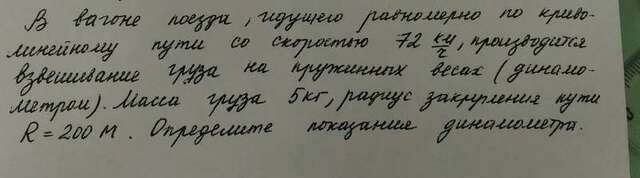 В вагоне поезда, идущего равномерно по криво-
линейному пути со скоростью 72 км/ч, производится
взвешивание груза на пружинных весах (динамо-
метром). Масса груза 5кг, радиус закругления пути
R = 200 м. Определите показания динамометра.